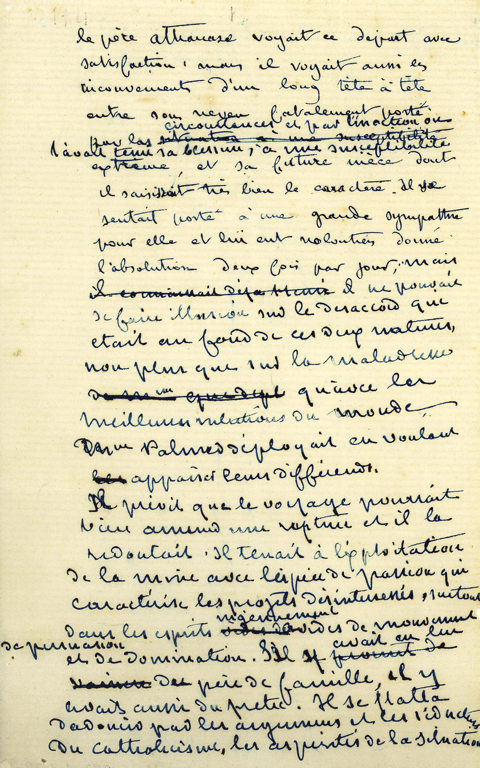 le père athanase voyait ce depart avec
satisfaction; mais il voyait aussi les
inconvenients d'un long tête à tête
entre son neveu fatalement porté
circonstances et par l'inaction ou
par les
l'avait tenu sa blessure à une susceptibilité
extrême, et sa future nièce dont
il saisissait très bien le caractère. Il se
sentait porté à une grande sympathie
pour elle et lui eut volontiers donné
l'absolution deux fois par jour, mais
il connaissait déja il ne pouvait
se faire illusion sur le desaccord qui
etait au fond de ces deux natures,
non plus que sur la maladresse
qu'avec les
meilleures intentions du monde,
Dme Palmer déployait en voulant
appaiser leurs différends.
Il prévit que le voyage pourrait
bien amener une rupture et il la
redoutait. Il tenait à l'exploitation
de la mine avec l'espèce de passion qui
caractérise les projets désinteressés, surtout
moyennement
dans les esprits avides de mouvement
de persuasion
et de domination. Il y avait en lui
du père de famille, il y
avait aussi du prêtre. Il se flatta
d'adoucir par les argumens et les séductions
du catholicisme, les asperités de la situation